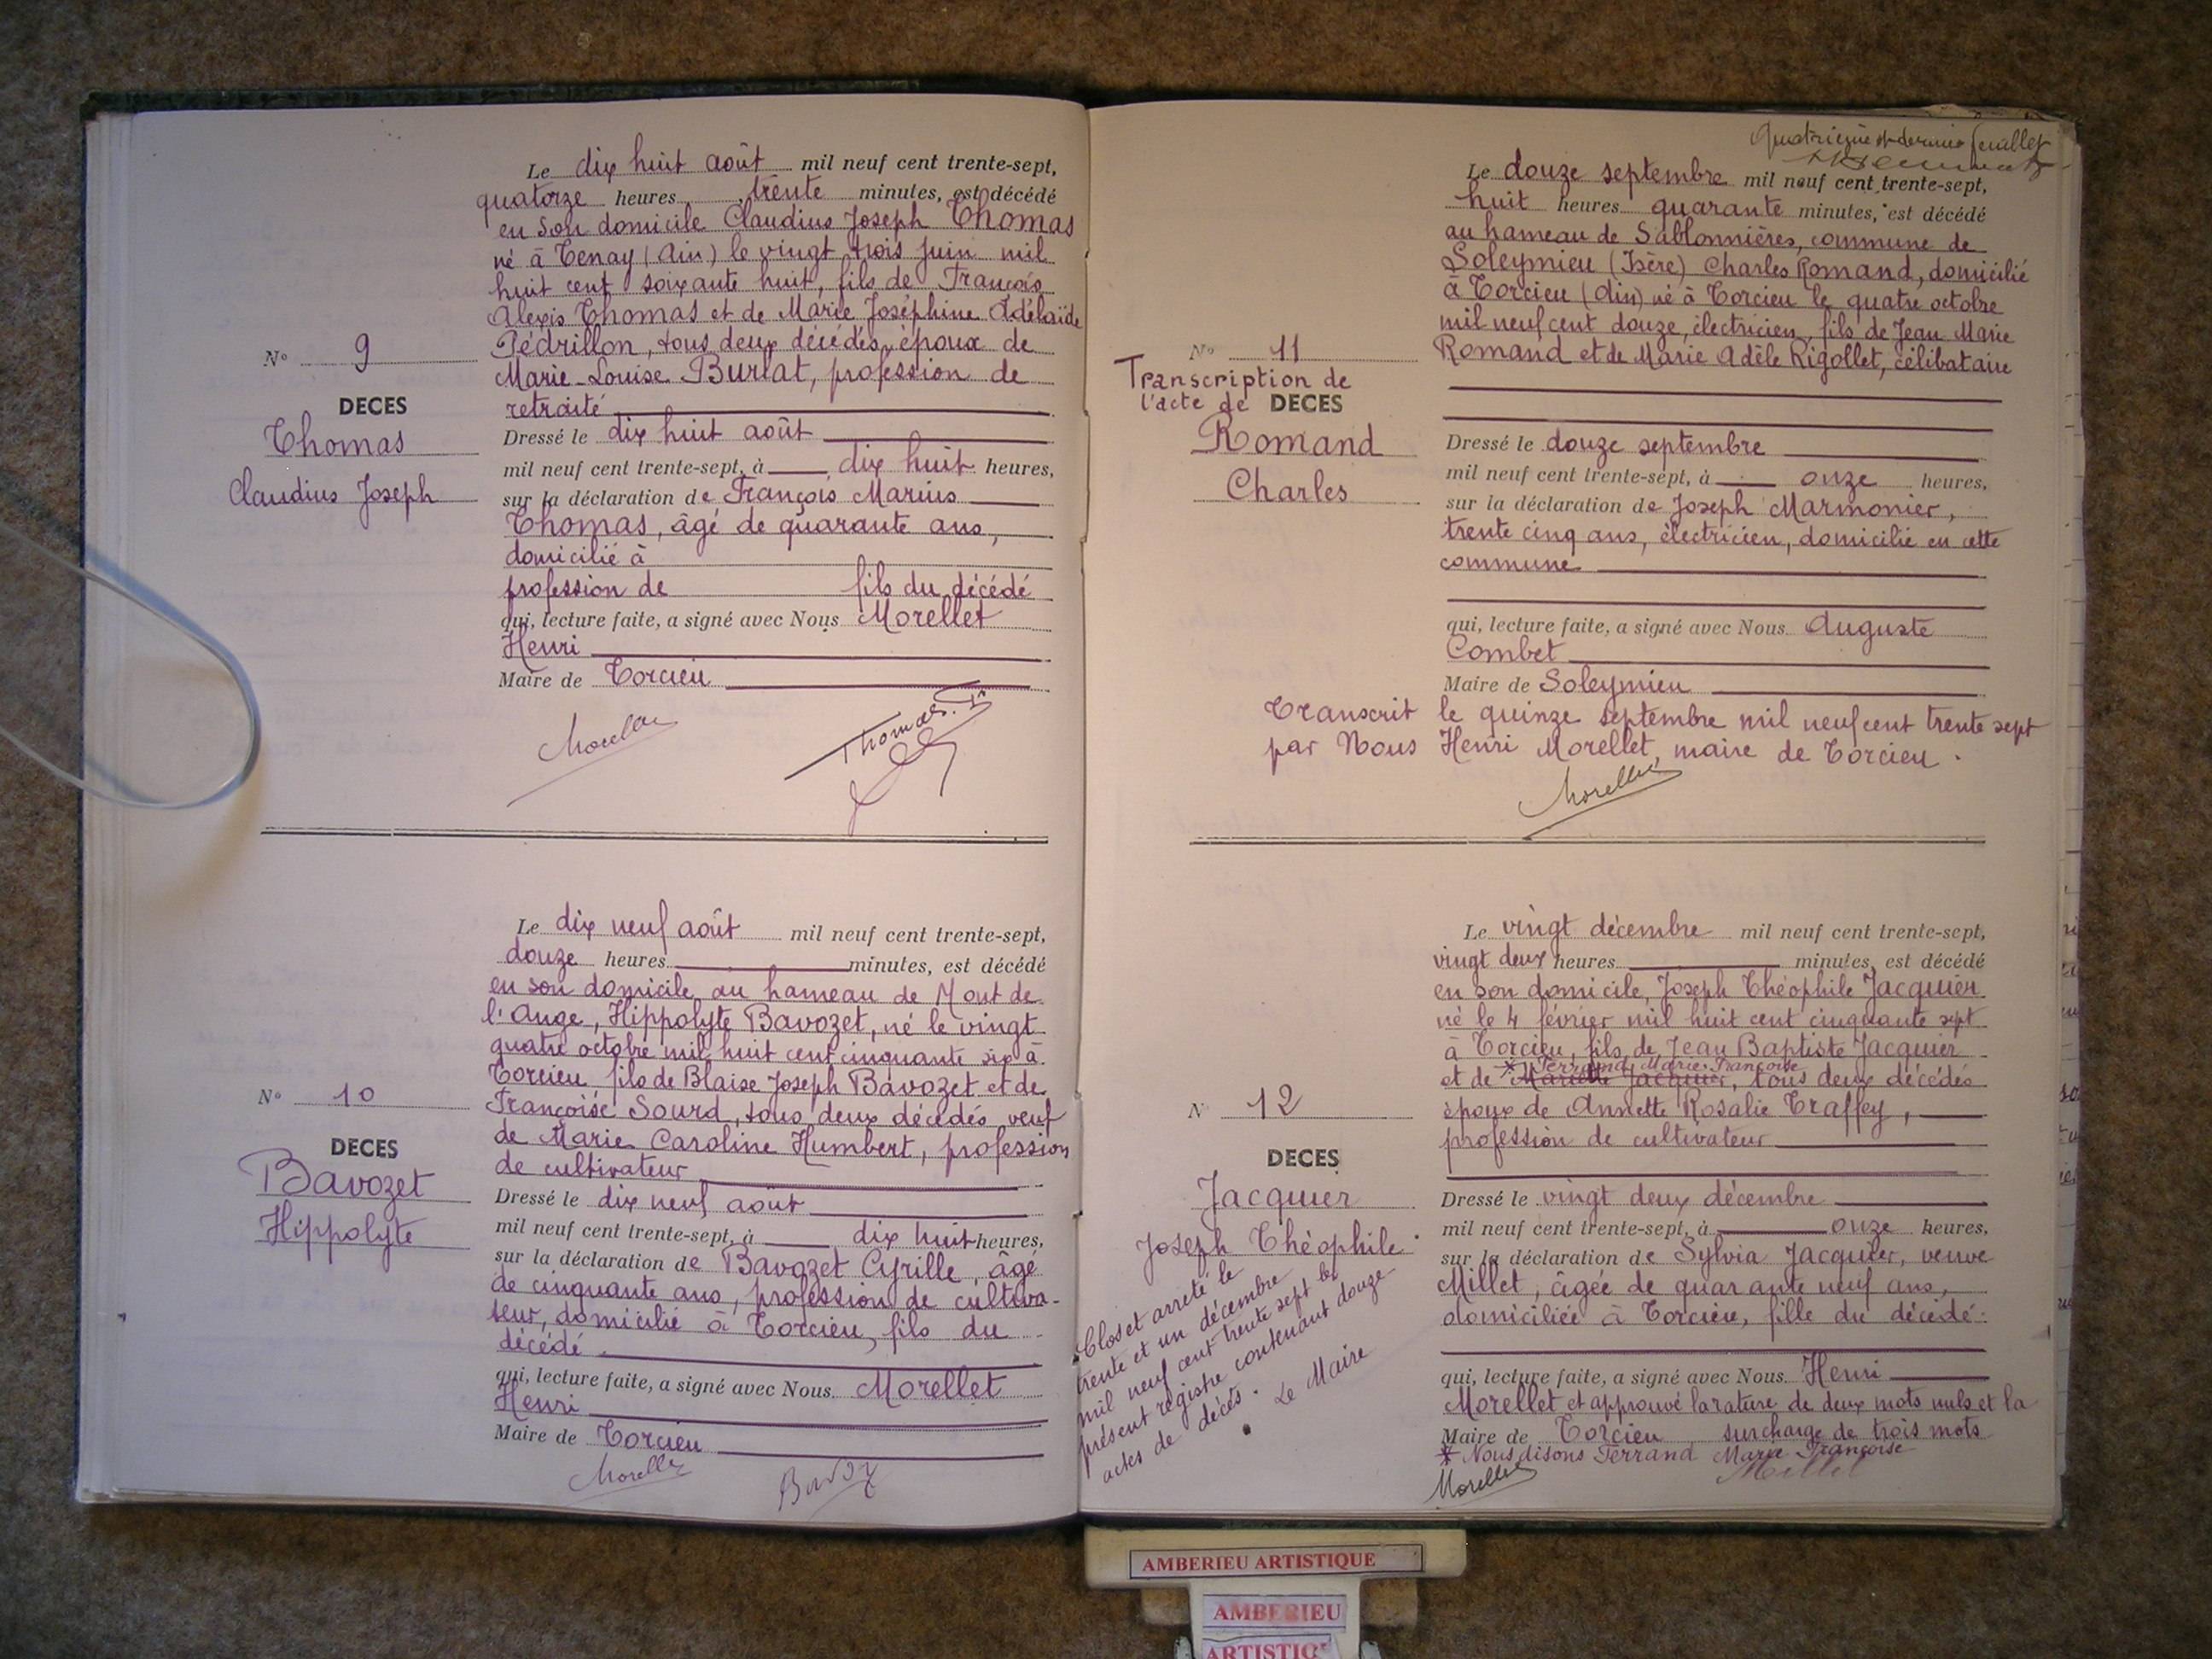 Le dix huit août mil neuf cent trente-sept,
quatorze heures trente minutes, est décédé
en son domicile Claudius Joseph Thomas
né à Tenay (Ain) le vingt trois juin mil
huit cent soixante huit, fils de François
Alexis Thomas et de Marie Joséphine Adélaïde
Pédrillon, tous deux décédés, époux de
Marie-Louise Burlat, profession de
retraité
N° 9
DECES
Thomas
Claudius Joseph
Dressé le dix huit août
mil neuf cent trente-sept, à dix huit heures,
sur la déclaration de François Marius
Thomas, âgé de quarante ans,
domicilié à
profession de fils du décédé
qui, lecture faite, a signé avec Nous Morellet
Henri
Maire de Torcieu
Morellet
Thomas
Le dix neuf août mil neuf cent trente-sept,
douze heures minutes, est décédé
en son domicile au hameau de Mont de
l'Ange, Hippolyte Bavozet, né le vingt
quatre octobre mil huit cent cinquante six à
Torcieu fils de Blaise Joseph Bavozet et de
Françoise Sourd, tous deux décédés, veuf
de Marie Caroline Humbert, profession
de cultivateur
N° 10
DECES
Bavozet
Hippolyte
Dressé le dix neuf août
mil neuf cent trente-sept, à dix huit heures,
sur la déclaration de Bavozet Cyrille, âgé
de cinquante ans, profession de cultiva-
teur, domicilié à Torcieu, fils du
décédé.
qui, lecture faite, a signé avec Nous Morellet
Henri
Maire de Torcieu
Morellet
Quatrième et dernier feuillet
Le douze septembre mil neuf cent trente-sept,
huit heures quarante minutes, est décédé
au hameau de Sablonnières, commune de
Soleymieu (Isère) Charles Romand, domicilié
à Torcieu (Ain) né à Torcieu le quatre octobre
mil neuf cent douze, électricien, fils de Jean Marie
Romand et de Marie Adèle Rigollet, célibataire
N° 11
Transcription de
l'acte de DECES
Romand
Charles
Dressé le douze septembre
mil neuf cent trente-sept, à onze heures,
sur la déclaration de Joseph Marmonier,
trente cinq ans, électricien, domicilié en cette
commune
qui, lecture faite, a signé avec Nous Auguste
Combet
Maire de Soleymieu
Transcrit le quinze septembre mil neuf cent trente sept
par Nous Henri Morellet, maire de Torcieu.
Morellet
Le vingt décembre mil neuf cent trente-sept,
vingt deux heures minutes, est décédé
en son domicile, Joseph Théophile Jacquier
né le 4 février mil huit cent cinquante sept
à Torcieu, fils de Jean Baptiste Jacquier
* Ferrand Marie Françoise
et de Mariette Jacquier, tous deux décédés
époux de Annette Rosalie Traffey,
profession de cultivateur
N° 12
DECES
Jacquier
Joseph Théophile
Dressé le vingt deux décembre
mil neuf cent trente-sept, à onze heures,
sur la déclaration de Sylvia Jacquier, veuve
Millet, âgée de quarante neuf ans,
domiciliée à Torcieu, fille du décédé.
qui, lecture faite, a signé avec Nous Henri
Morellet et approuvé la rature de deux mots nuls et la
Maire de Torcieu surcharge de trois mots
* Nous disons Ferrand Marie Françoise
Morellet
Millet
Clos et arrêté le
trente et un décembre
mil neuf cent trente sept le
présent registre contenant douze
actes de décès.
Le Maire
AMBERIEU ARTISTIQUE
AMBERIEU
ARTISTIQ